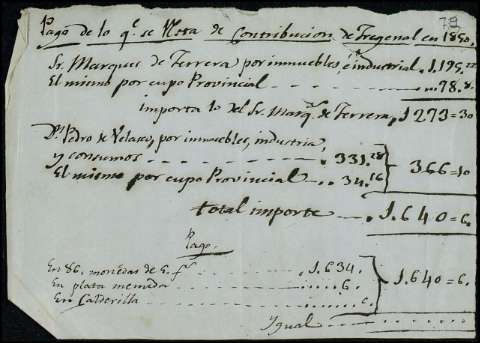 78
Pago de lo q.e se Nota de Contribucion de Fregenal en 1850.
Sr. Marques de Ferrera por inmuebles, é industrial. 1.195.22
El mismo por cupo Provincial .. 78.8.
importa lo del Sr. Marq.s de Ferrera, 1273=30
Dn. Pedro de Velasco, por inmuebles, industria,
y consumos .. 331.28
El mismo por cupo Provincial .. 34.16
366=10
Total importe .. 1.640=6.
Pago.
En 86. monedas de 1.634.
En plata menuda 6.
En Calderilla 6.
1.640=6.
Ygual